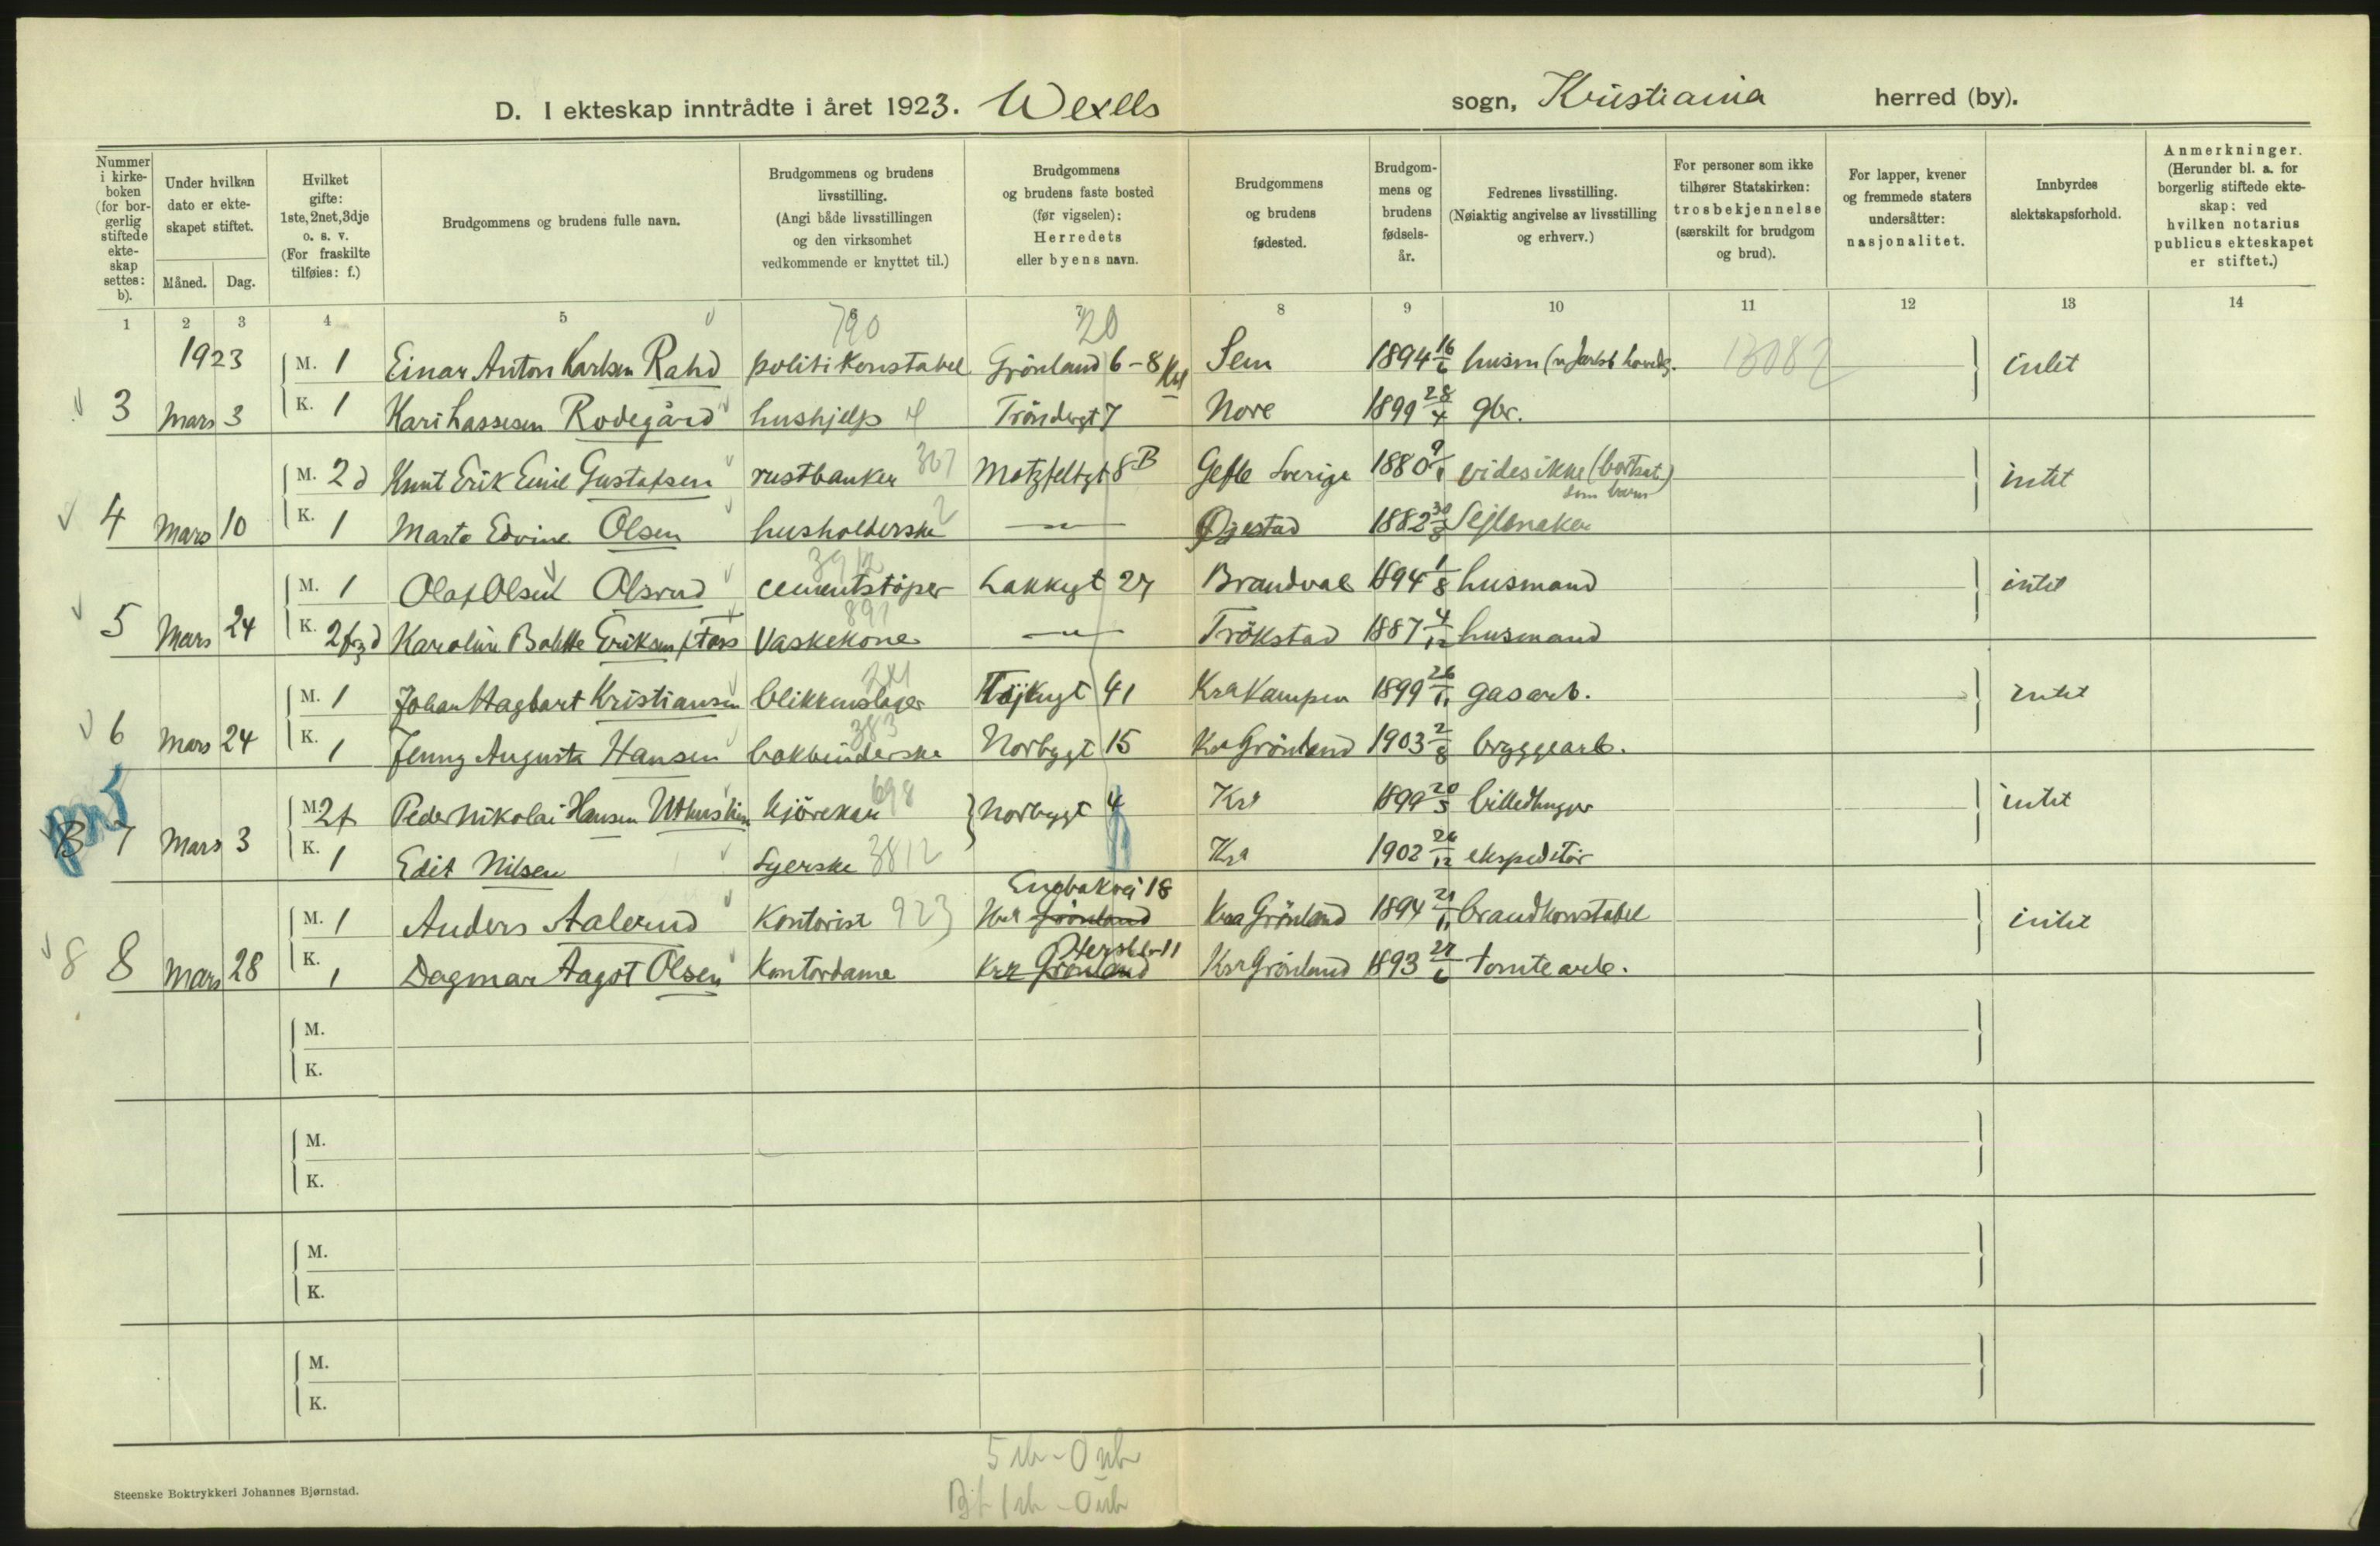 D. I ekteskap inntrådte i året 1923. Wexels sogn, Kristiania herred (by).
Nummer i kirkeboken (for borgerlig stiftede ekteskap settes: b).
Under hvilken dato er ekteskapet stiftet.
Måned. Dag.
Hvilket gifte: 1ste, 2net, 3dje o. s. v. (For fraskilte tilføies: f.)
Brudgommens og brudens fulle navn.
Brudgommens og brudens livsstilling. (Angi både livsstillingen og den virksomhet vedkommende er knyttet til.)
Brudgommens og brudens faste bosted (før vigselen): Herredets eller byens navn.
Brudgommens og brudens fødested.
Brudgommens og brudens fødselsår.
Fedrenes livsstilling. (Nøiaktig angivelse av livsstilling og erhverv.)
For personer som ikke tilhører Statskirken: trosbekjennelse (særskilt for brudgom og brud).
For lapper, kvener og fremmede staters undersåtter: nasjonalitet.
Innbyrdes slektskapsforhold.
Anmerkninger. (Herunder bl. a. for borgerlig stiftede ekteskap: ved hvilken notarius publicus ekteskapet er stiftet.)
1 2 3 4 5 8 9 10 11 12 13 14
790 20
1923 M. 1 Einar Anton Karlsen Rahd politikonstabel Grönland 6-8 Sem 1894 16/6 husm 13082 intet
3 Mars 3 K. 1 Kari Lassesen Rodegård hushjelp Tröndergt 7 Nore 1899 28/4 gbr.
M. 2 d Knut Erik Emil Gustafsen rustbanker 307 Motzfeltgt 8B Gefle Sverige 1880 videsikke (bortsat.) som barn intet
4 Mars 10 K. 1 Marta Edvine Olsen husholderske 2 —"— Øjestad 1882 Sejlmaker
3912
M. 1 Olaf Olsen Olsrud cementstöper Lakkegt 27 Brandval 1894 1/8 husmand intet
891
5 Mars 24 K. Karoline Bolette Eriksen f. Foss Vaskekone —"— Trökstad 1887 4/12 husmand
241
M. 1 Johan Hagbart Kristiansen blikkenslager Töjengt 41 Kra Kampen 1899 26/11 gasarb. intet
383
6 Mars 24 K. 1 Jenny Augusta Hansen bokbinderske Norbygt 15 Kra Grönland 1903 2/8 bryggearb.
M. 2f Peder Nikolai Hansen kjörekar 698 Norbygt 4 Kra 1899 20/5 billedhugger intet
B 7 Mars 3 K. 1 Edit Nilsen Syerske 3812 Kra 1902 26/12 ekspeditör
Engbakvei 18
M. 1 Anders Aalerud Kontorist 923 Kra Grönland Kra Grönland 1894 21/11 brandkonstabel intet
Herslebg 11
8 8 Mars 28 K. 1 Dagmar Aagot Olsen Kontordame Kra Grönland Kra Grönland 1893 27/6 tomtearb.
M.
K.
M.
K.
M.
K.
M.
K.
Steenske Boktrykkeri Johannes Bjørnstad.